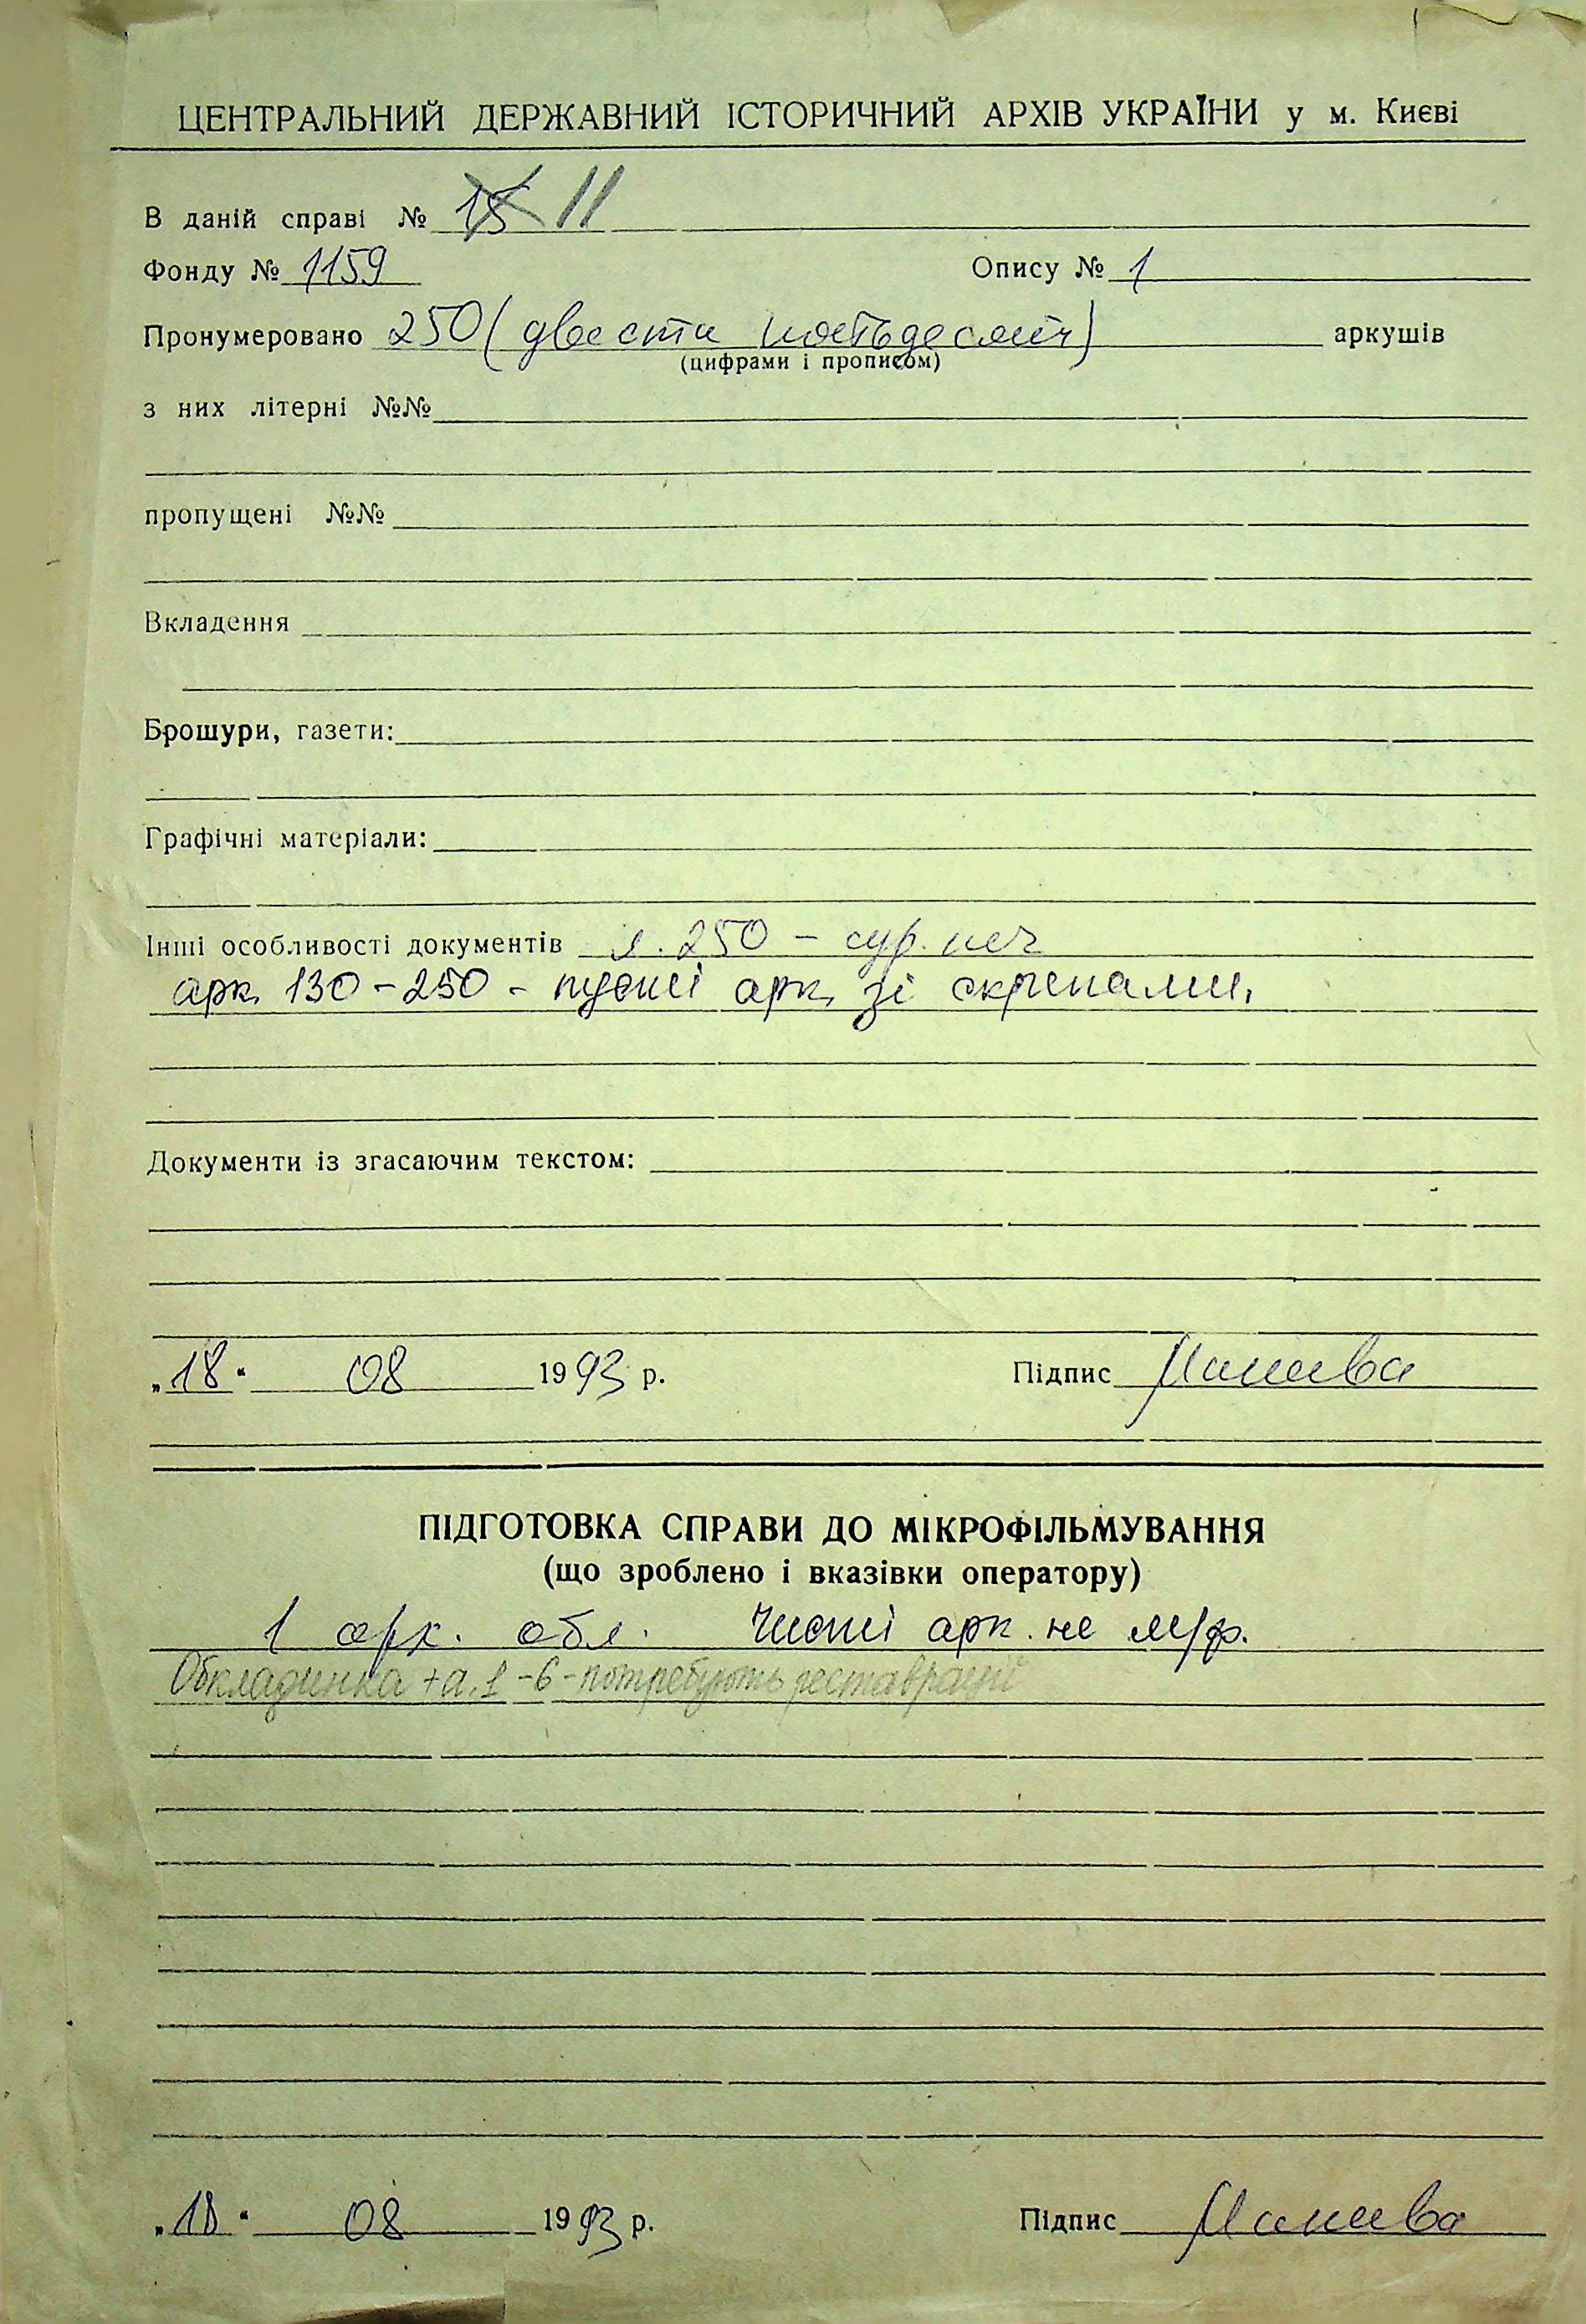 ЦЕНТРАЛЬНИЙ ДЕРЖАВНИЙ ІСТОРИЧНИЙ АРХІВ УКРАЇНИ у м. Києві
В даній справі № 15 11
Фонду № 1159 Опису № 1
Пронумеровано 250 (двести пятьдесят) аркушів
(цифрами і прописом)
з них літерні №№
пропущені №№
Вкладення
Брошури, газети:
Графічні матеріали:
Інші особливості документів л. 250 – сур. печ
арк. 130-250 - пусті арк. зі скрепами.
Документи із згасаючим текстом:
„18“ 08 1993 р. Підпис
ПІДГОТОВКА СПРАВИ ДО МІКРОФІЛЬМУВАННЯ
(що зроблено і вказівки оператору)
1 арк. обл. Чисті арк. не м/ф.
Обкладинка + а. 1-6 - потребують реставрації
„18“ 08 1993 р. Підпис